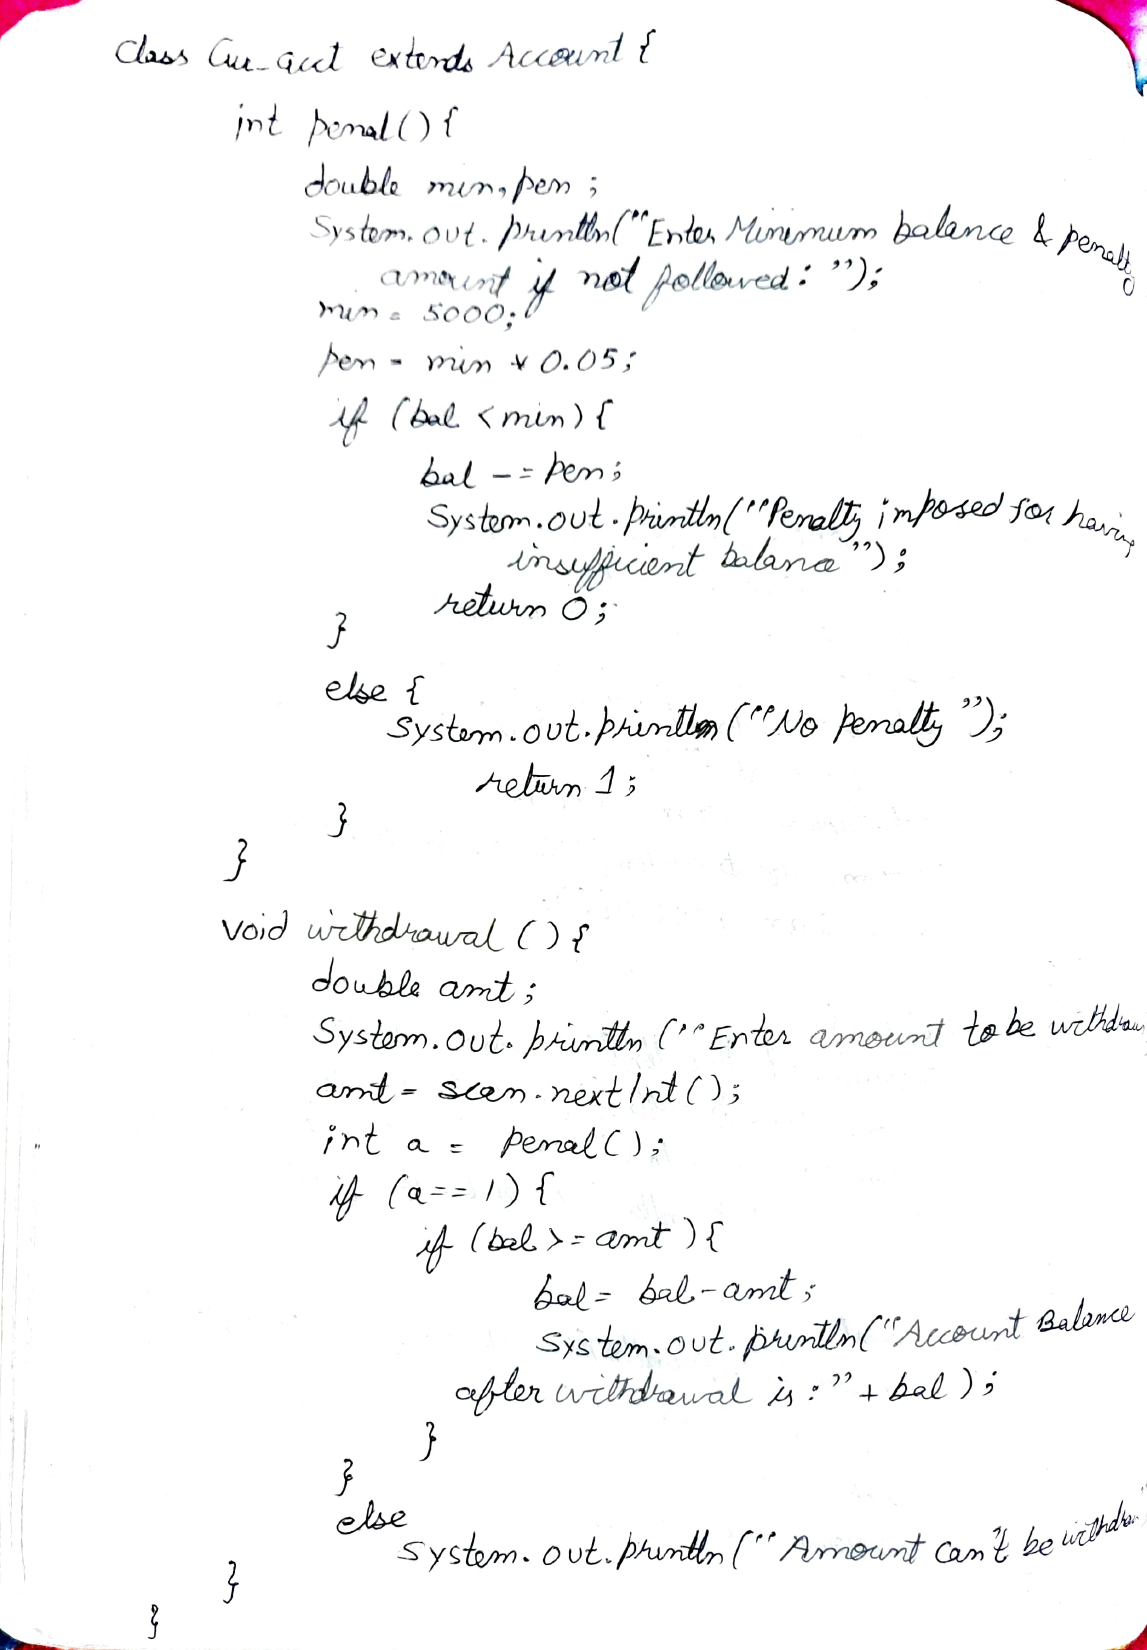 Class Cur_acct extends Account {
int penal() {
double min, pen ;
System.out.println("Enter Minimum balance & penalty
amount if not followed : ");
min = 5000;
pen = min * 0.05;
if (bal < min) {
bal -= pen;
System.out.println("Penalty imposed for having
insufficient balance");
return 0;
}
else {
System.out.println("No penalty ");
return 1;
}
}
void withdrawal () {
double amt ;
System.out.println ("Enter amount to be withdraw
amt = scan.nextInt();
int a = penal();
if (a == 1) {
if (bal >= amt ) {
bal = bal - amt ;
System.out.println("Account Balance
after withdrawal is : " + bal ) ;
}
}
else
System.out.println (" Amount can't be withdraw
}
}